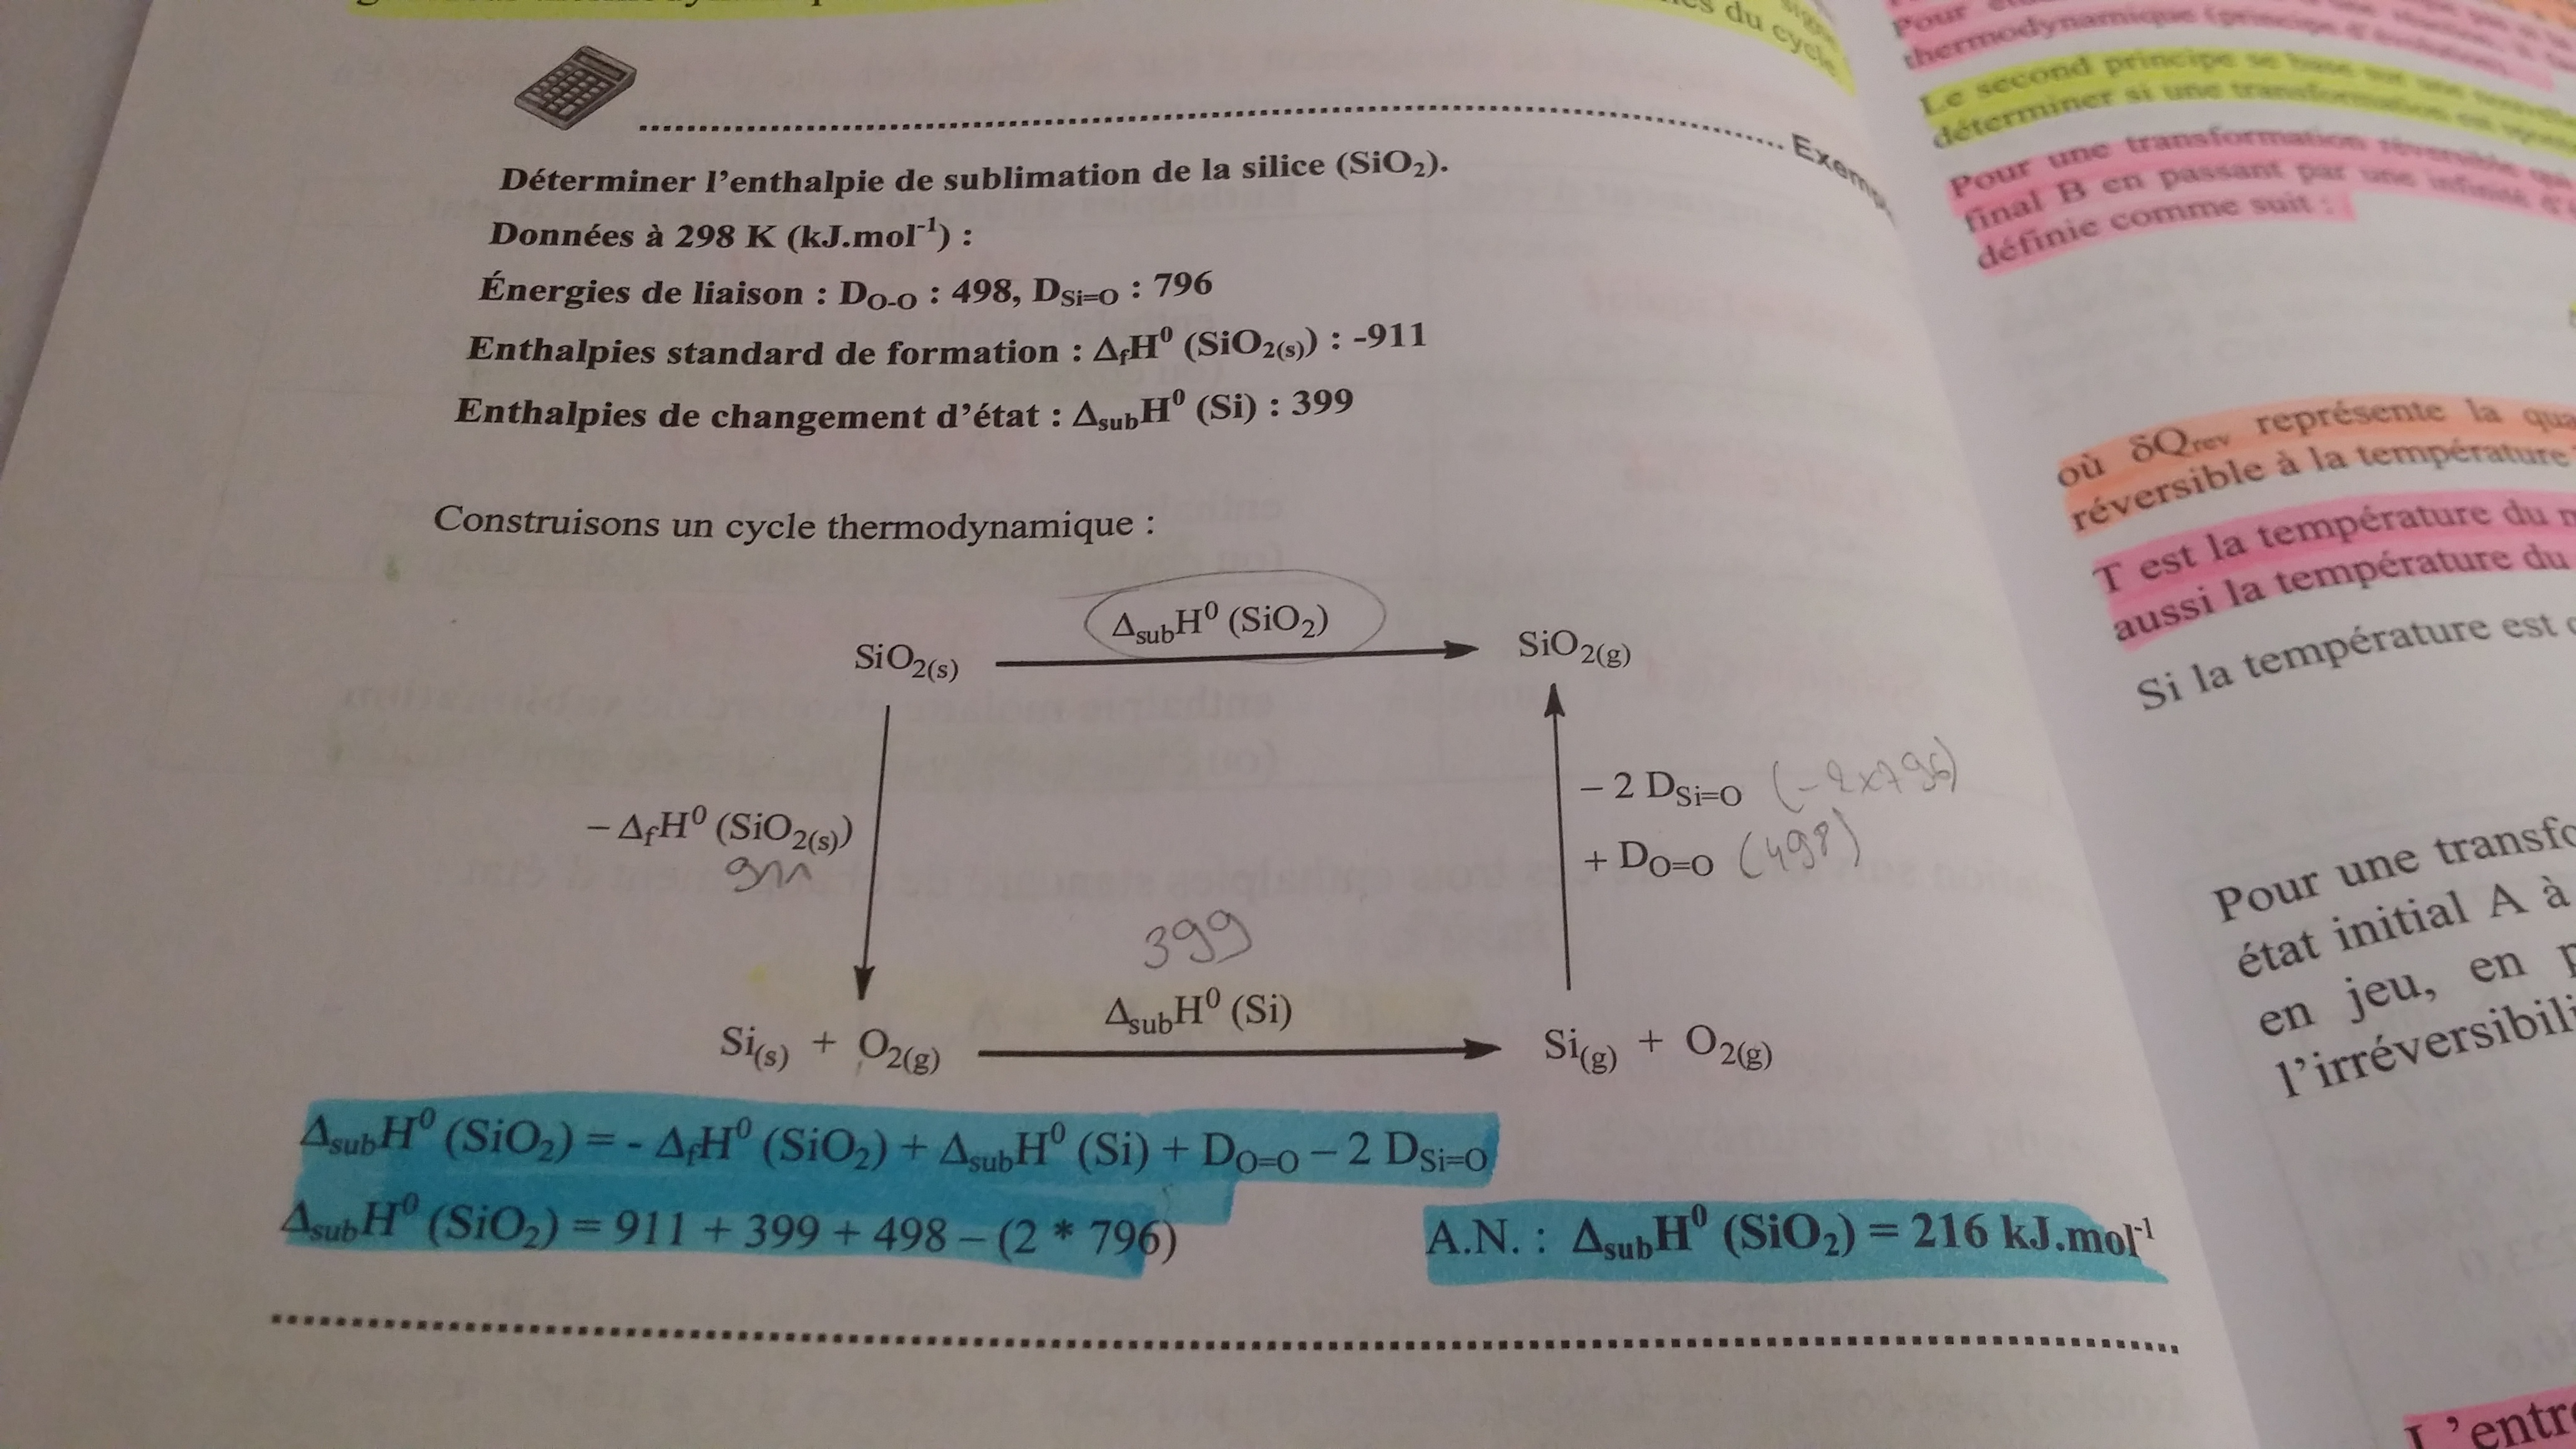 es du cycle
Exemp
Déterminer l'enthalpie de sublimation de la silice (SiO₂).
Données à 298 K (kJ.mol⁻¹) :
Énergies de liaison : D_O-O : 498, D_Si=O : 796
Enthalpies standard de formation : Δ_fH⁰ (SiO₂₍ₛ₎) : -911
Enthalpies de changement d'état : Δ_subH⁰ (Si) : 399
Construisons un cycle thermodynamique :
Δ_subH⁰ (SiO₂)
SiO₂₍ₛ₎ SiO₂(g)
– 2 D_Si=O (-2x796)
– Δ_fH⁰ (SiO₂₍ₛ₎)
911
+ D_O=O (498)
399
Δ_subH⁰ (Si)
Si₍ₛ₎ + O₂(g) Si(g) + O₂(g)
Δ_subH⁰ (SiO₂) = - Δ_fH⁰ (SiO₂) + Δ_subH⁰ (Si) + D_O=O – 2 D_Si=O
Δ_subH⁰ (SiO₂) = 911 + 399 + 498 – (2 * 796) A.N. : Δ_subH⁰ (SiO₂) = 216 kJ.mol⁻¹
Pour
thermodynamique (principe d'évolution)
Le second principe se base sur une
déterminer si une transformation est
Pour une transformation réversible
final B en passant par une infinité d'
définie comme suit :
où δQ_rev représente la qua
réversible à la température
T est la température du
aussi la température du
Si la température est
Pour une transfo
état initial A à
en jeu, en
l'irréversibili
L'entr